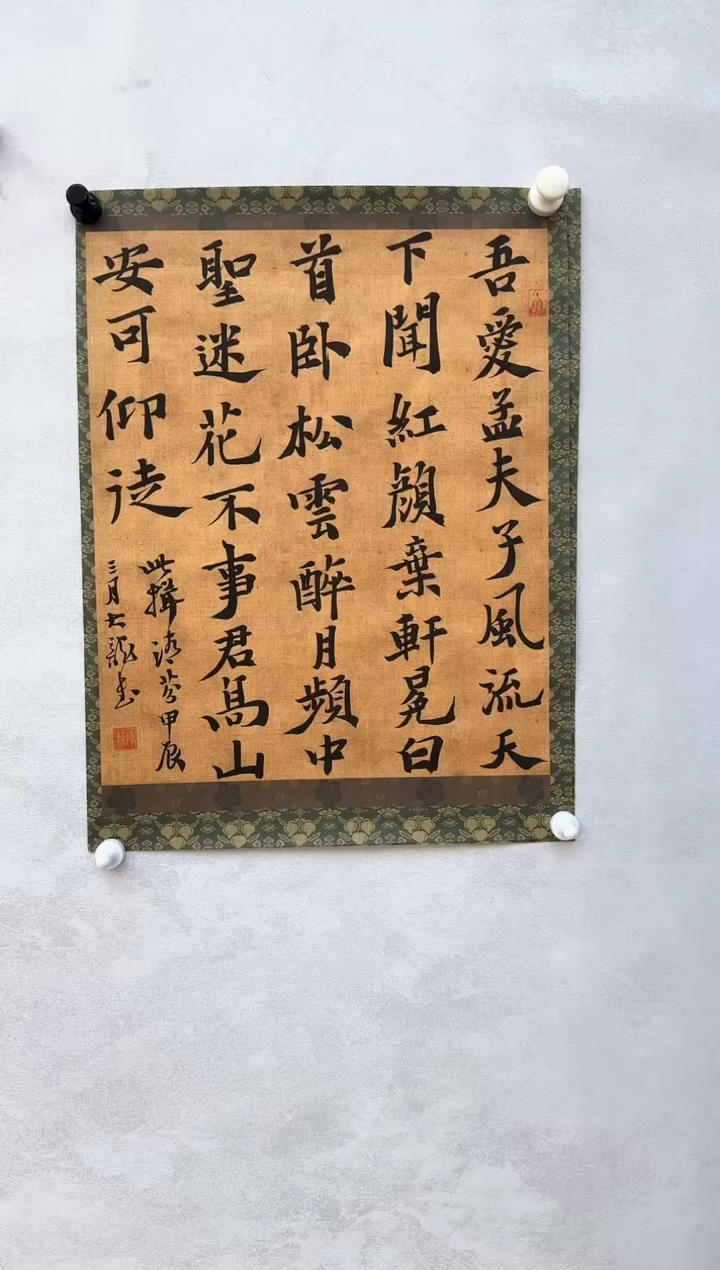 吾愛孟夫子風流天
下聞紅顔棄軒冕白
首卧松雲醉月頻中
聖迷花不事君高山
安可仰徒
此揖清芬甲辰
三月龍書